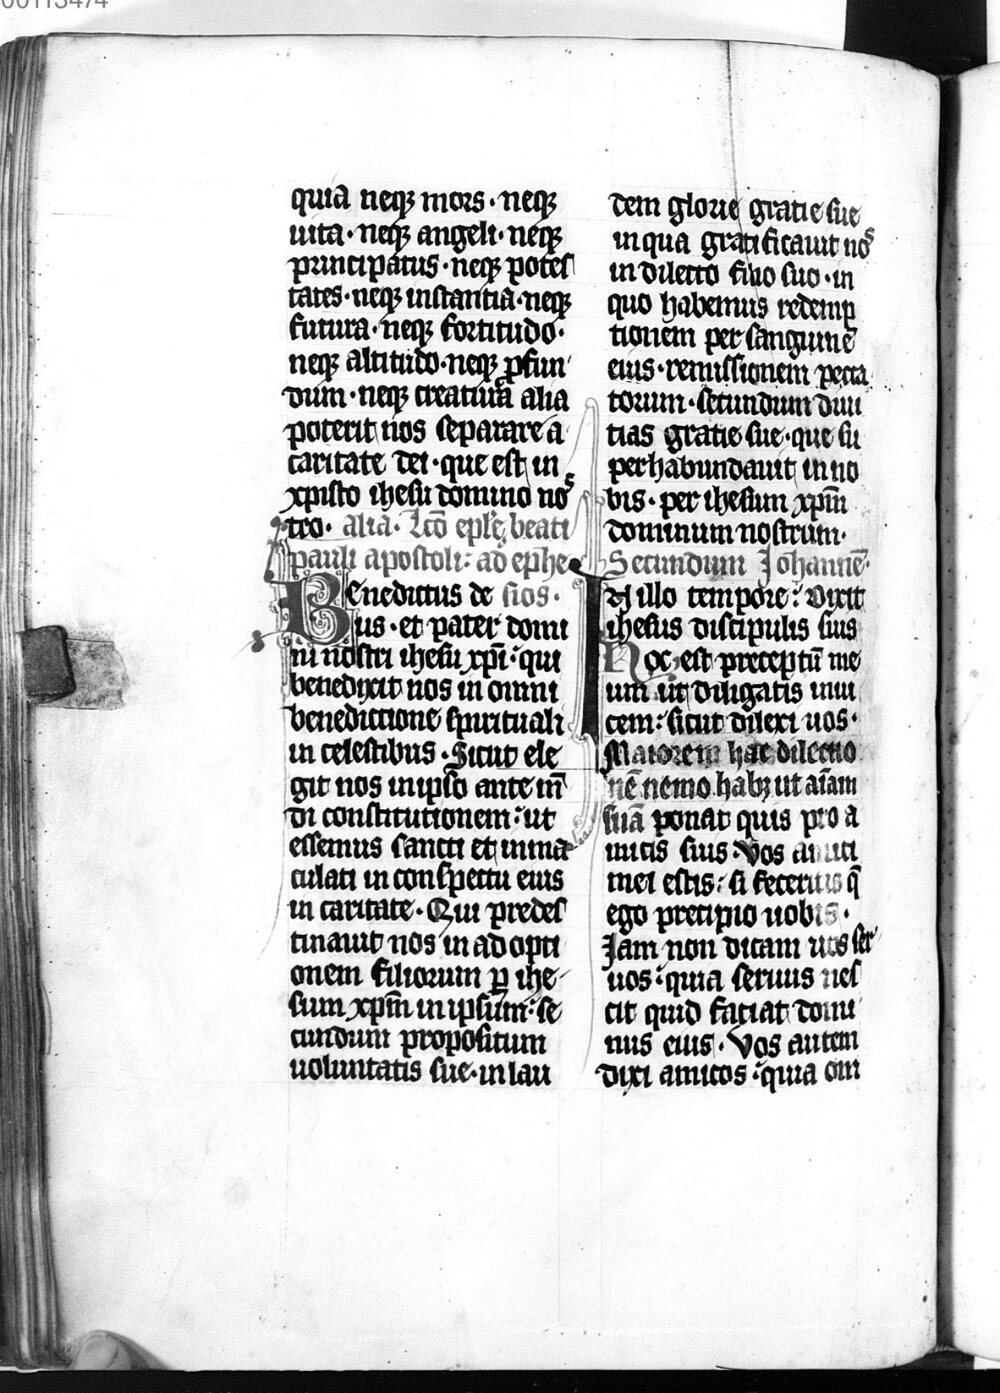 00113474
quia neqꝫ mors · neqꝫ
uita · neqꝫ angeli · neqꝫ
principatus · neqꝫ potes
tates · neqꝫ instantia · neqꝫ
futura · neqꝫ fortitudo ·
neqꝫ altitudo · neqꝫ ꝓfun
dum · neqꝫ creatura alia
poterit nos separare a
caritate dei · que est in
xpisto ihesu domino no
tro · alia · Lcō epłe beati
pauli apostoli : ad ephe
Benedictus de sios ·
us · et pater domi
ni nostri ihesu xpī · qui
benedixit nos in omni
benedictione spirituali
in celestibus · Sicut ele
git nos in ipso ante mū
di constitutionem : ut
essemus sancti et inma
culati in conspectu eius
in caritate · Qui predes
tinauit nos in adopti
onem filiorum ꝑ ihe
sum xpm̄ in ipsum : se
cundum propositum
uoluntatis sue · in lau
dem glorie gratie sue
in qua gratificauit nos
in dilecto filio suo · in
quo habemus redemp
tionem per sanguinē
eius · remissionem pecca
torum · secundum diui
tias gratie sue · que su
perhabundauit in no
bis · per ihesum xpm̄
dominum nostrum ·
Secundum Johannē ·
In illo tempore : Dixit
ihesus discipulis suis
Hoc est preceptū me
um ut diligatis inui
cem : sicut dilexi uos ·
Maiorem hac dilectio
nē nemo habꝫ ut aīam
suā ponat quis pro a
micis suis · Vos amici
mei estis : si feceritis q̄
ego precipio uobis ·
Jam non dicam uos ser
uos : quia seruus nes
cit quid faciat domi
nus eius · Vos autem
dixi amicos : quia om